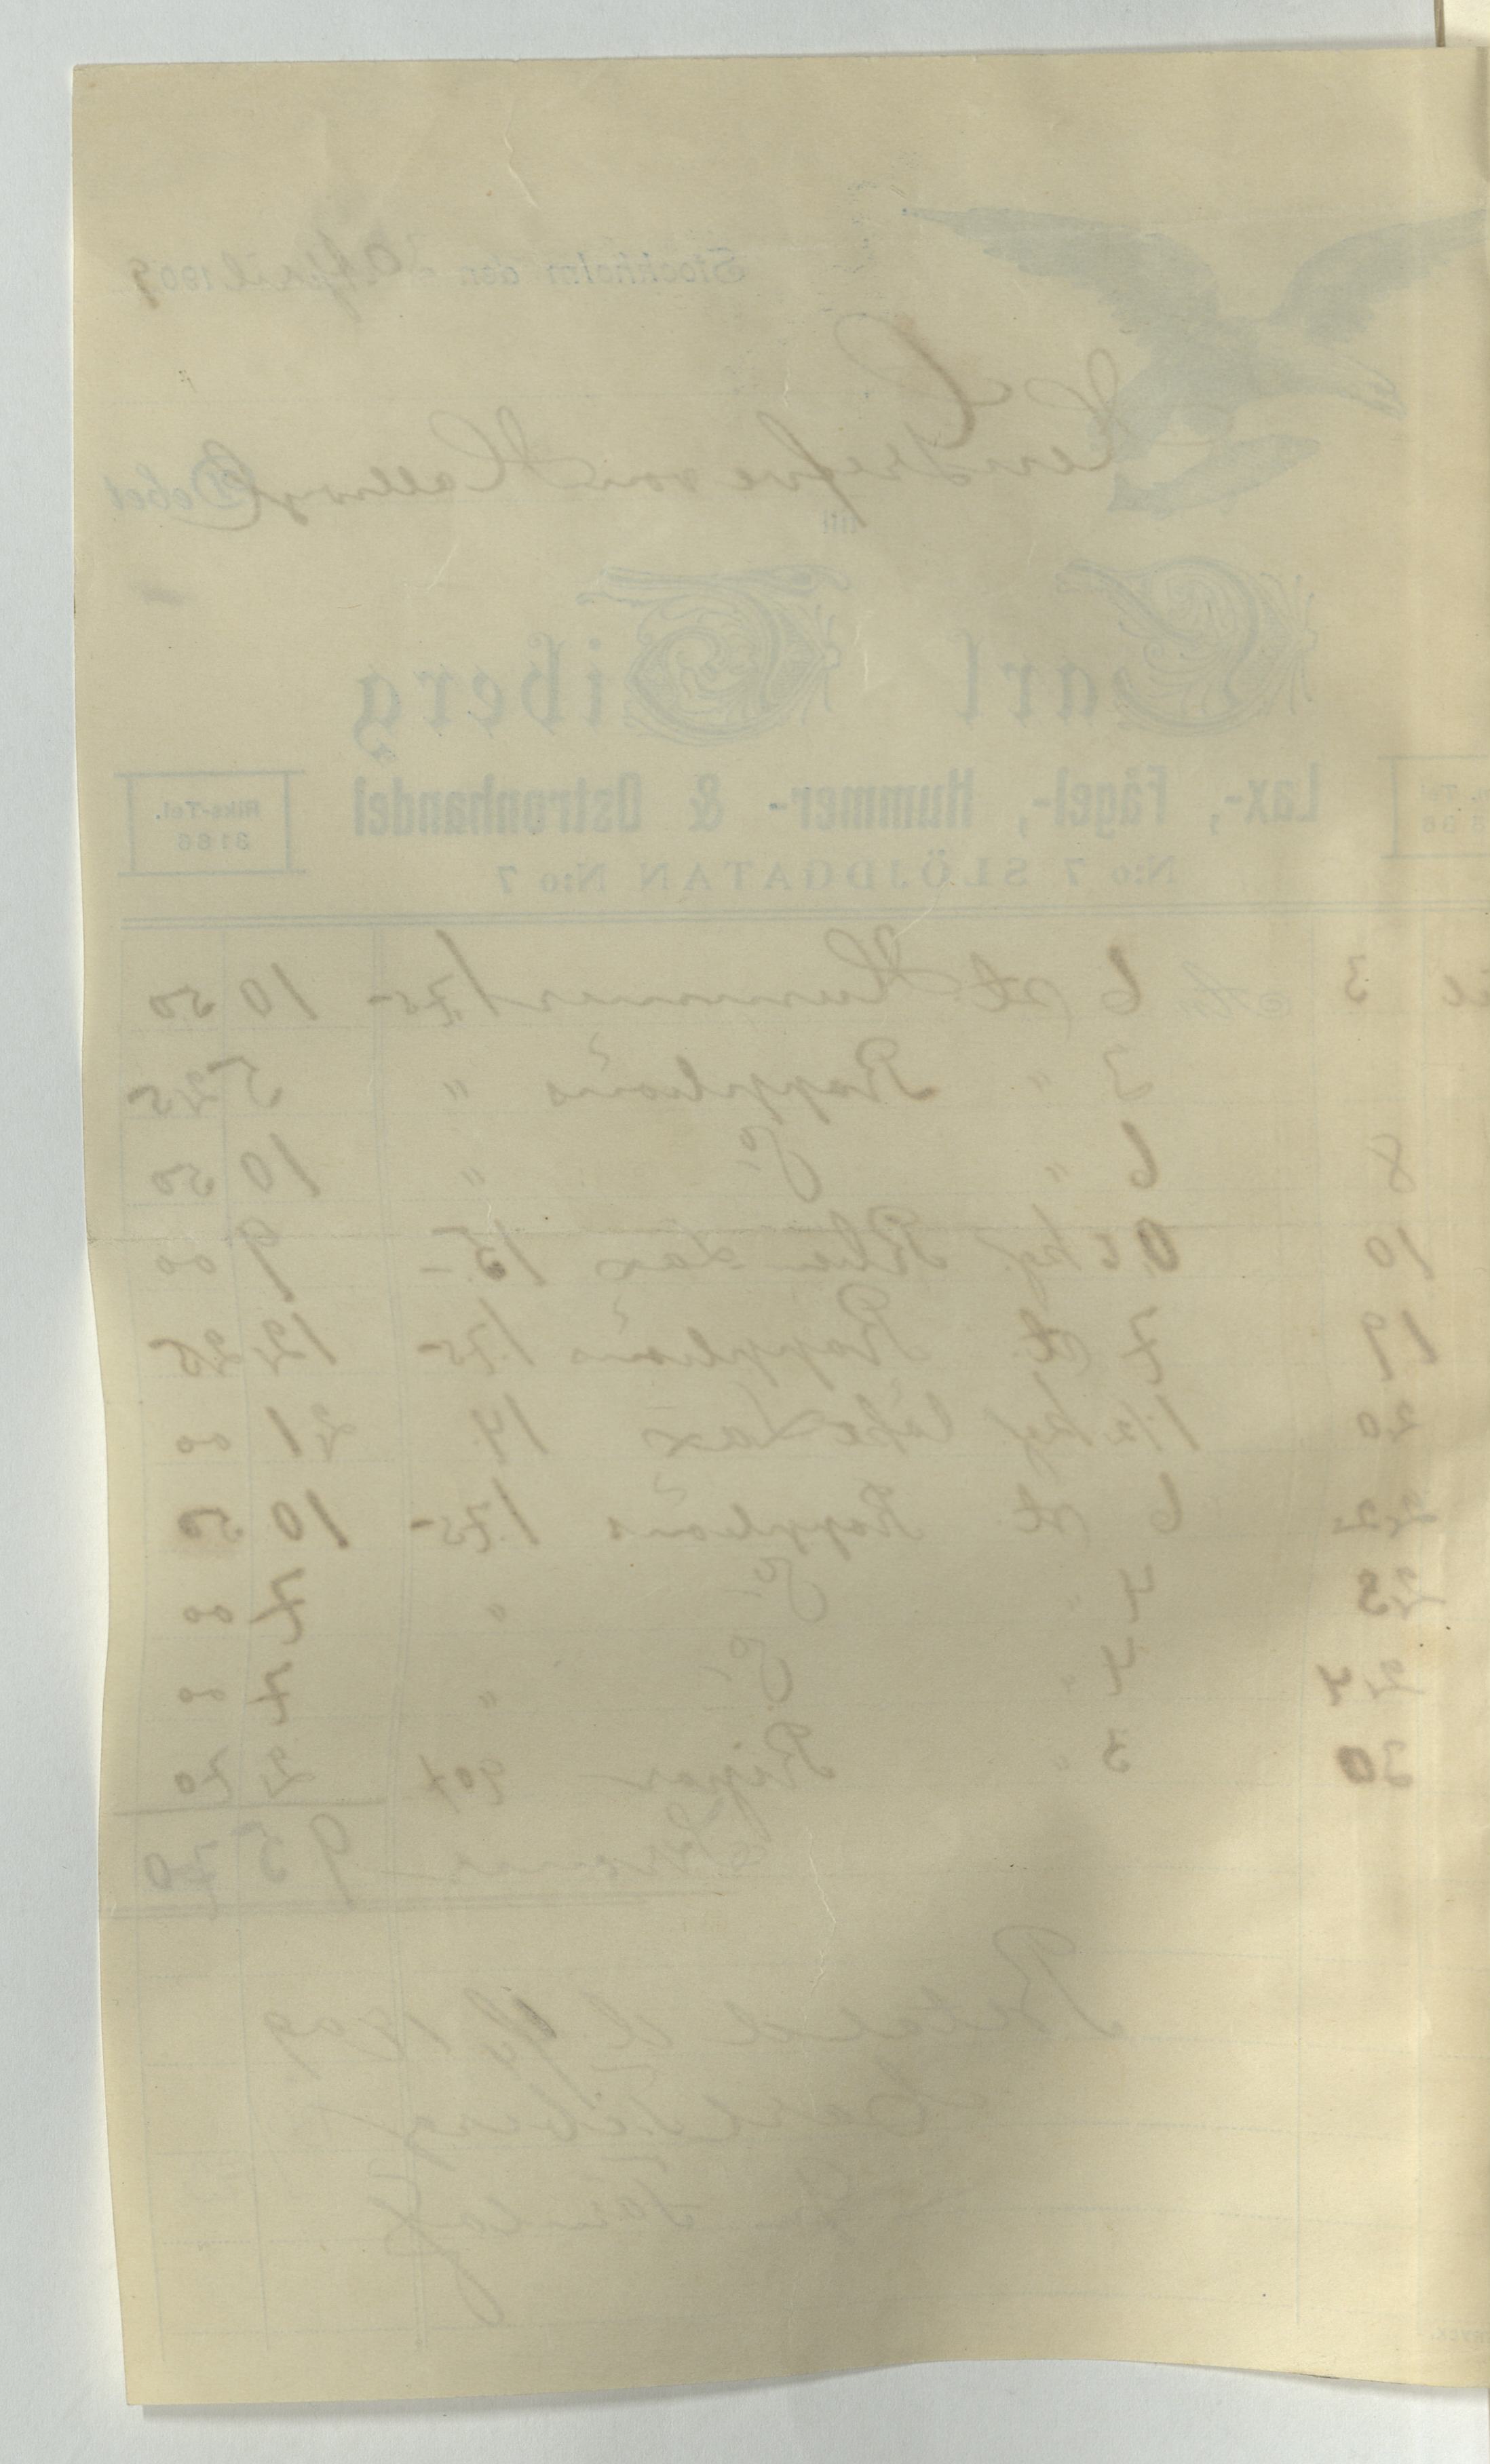 Stockholm den April 1909
Herr Grefve von Hallwyl Debet
till
Carl Tiberg
Lax-, Fågel-, Hummer- & Ostronhandel
Riks-Tel. 3166
N:o 7 SLÖJDGATAN N:o 7
3 6 st Hummer 1.75- 10 50
3 " Rapphöns " 5 25
8 6 " do " 10 50
10 0.6 kg Lax 15.- 9 00
19 7 st Rapphöns 1.75- 12 25
20 1 1/2 kg Lax 14 21 00
22 6 st Rapphöns 1.75- 10 50
23 4 " do " 7 00
24 4 " do " 7 00
30 3 " Ripor 90 2 70
Kronor 95 70
Betald d. 1909
Carl Tiberg